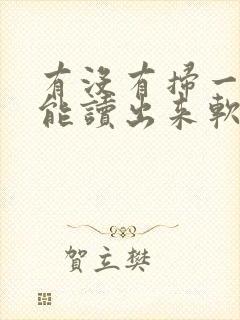 有沒有掃一
能讀出来軟
賀立樊